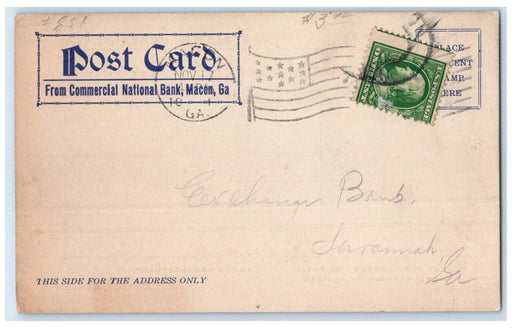 # 851
Post Card
From Commercial National Bank, Macon, Ga
MACON
NOV 17
GA.
PLACE
CENT
STAMP
HERE
Exchange Bank,
Savannah,
Ga
THIS SIDE FOR THE ADDRESS ONLY